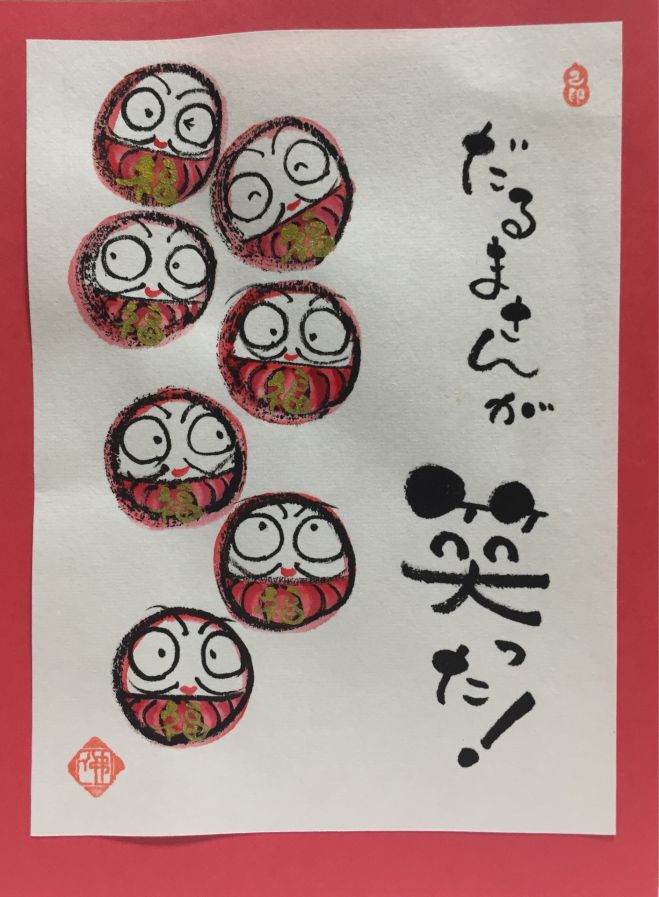 だるまさんが
笑った!
福
福
福
福
福
福
福